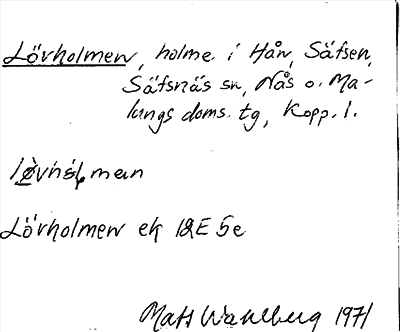 Lövholmen, holme i Hån, Säfsen,
Säfsnäs sn, Nås o. Ma-
lungs doms. tg, Kopp. l.
Lövholmen ek 12E 5e
Mats Wahlberg 1971